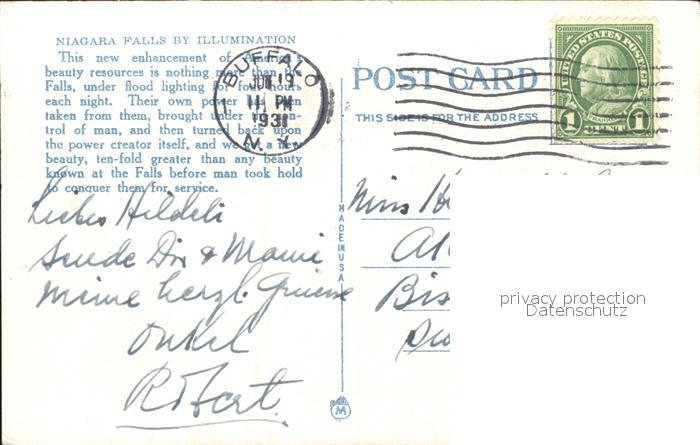 NIAGARA FALLS BY ILLUMINATION
This new enhancement of America's
beauty resources is nothing more than the
Falls, under flood lighting for four hours
each night. Their own power has been
taken from them, brought under the con-
trol of man, and then turned back upon
the power creator itself, and we see a new
beauty, ten-fold greater than any beauty
known at the Falls before man took hold
to conquer them for service.
BUFFALO
JUN 19
11 PM
1931
N.Y.
POST CARD
THIS SIDE IS FOR THE ADDRESS
UNITED STATES POSTAGE
FRANKLIN
1 CENT 1
MADE IN USA
Liebes Hildeli
Sende Dir & Mami
meine herzl. Gruesse
Onkel
Robert.
Miss
Bis
M
privacy protection
Datenschutz